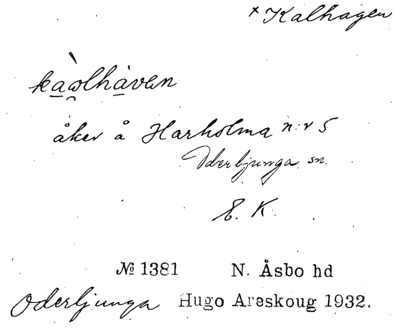 × Kalhagen
kàwlhàven
åker å Harholma nr 5
Oderljunga sn.
E. K.
№ 1381 N. Åsbo hd
Oderljunga Hugo Areskoug 1932.